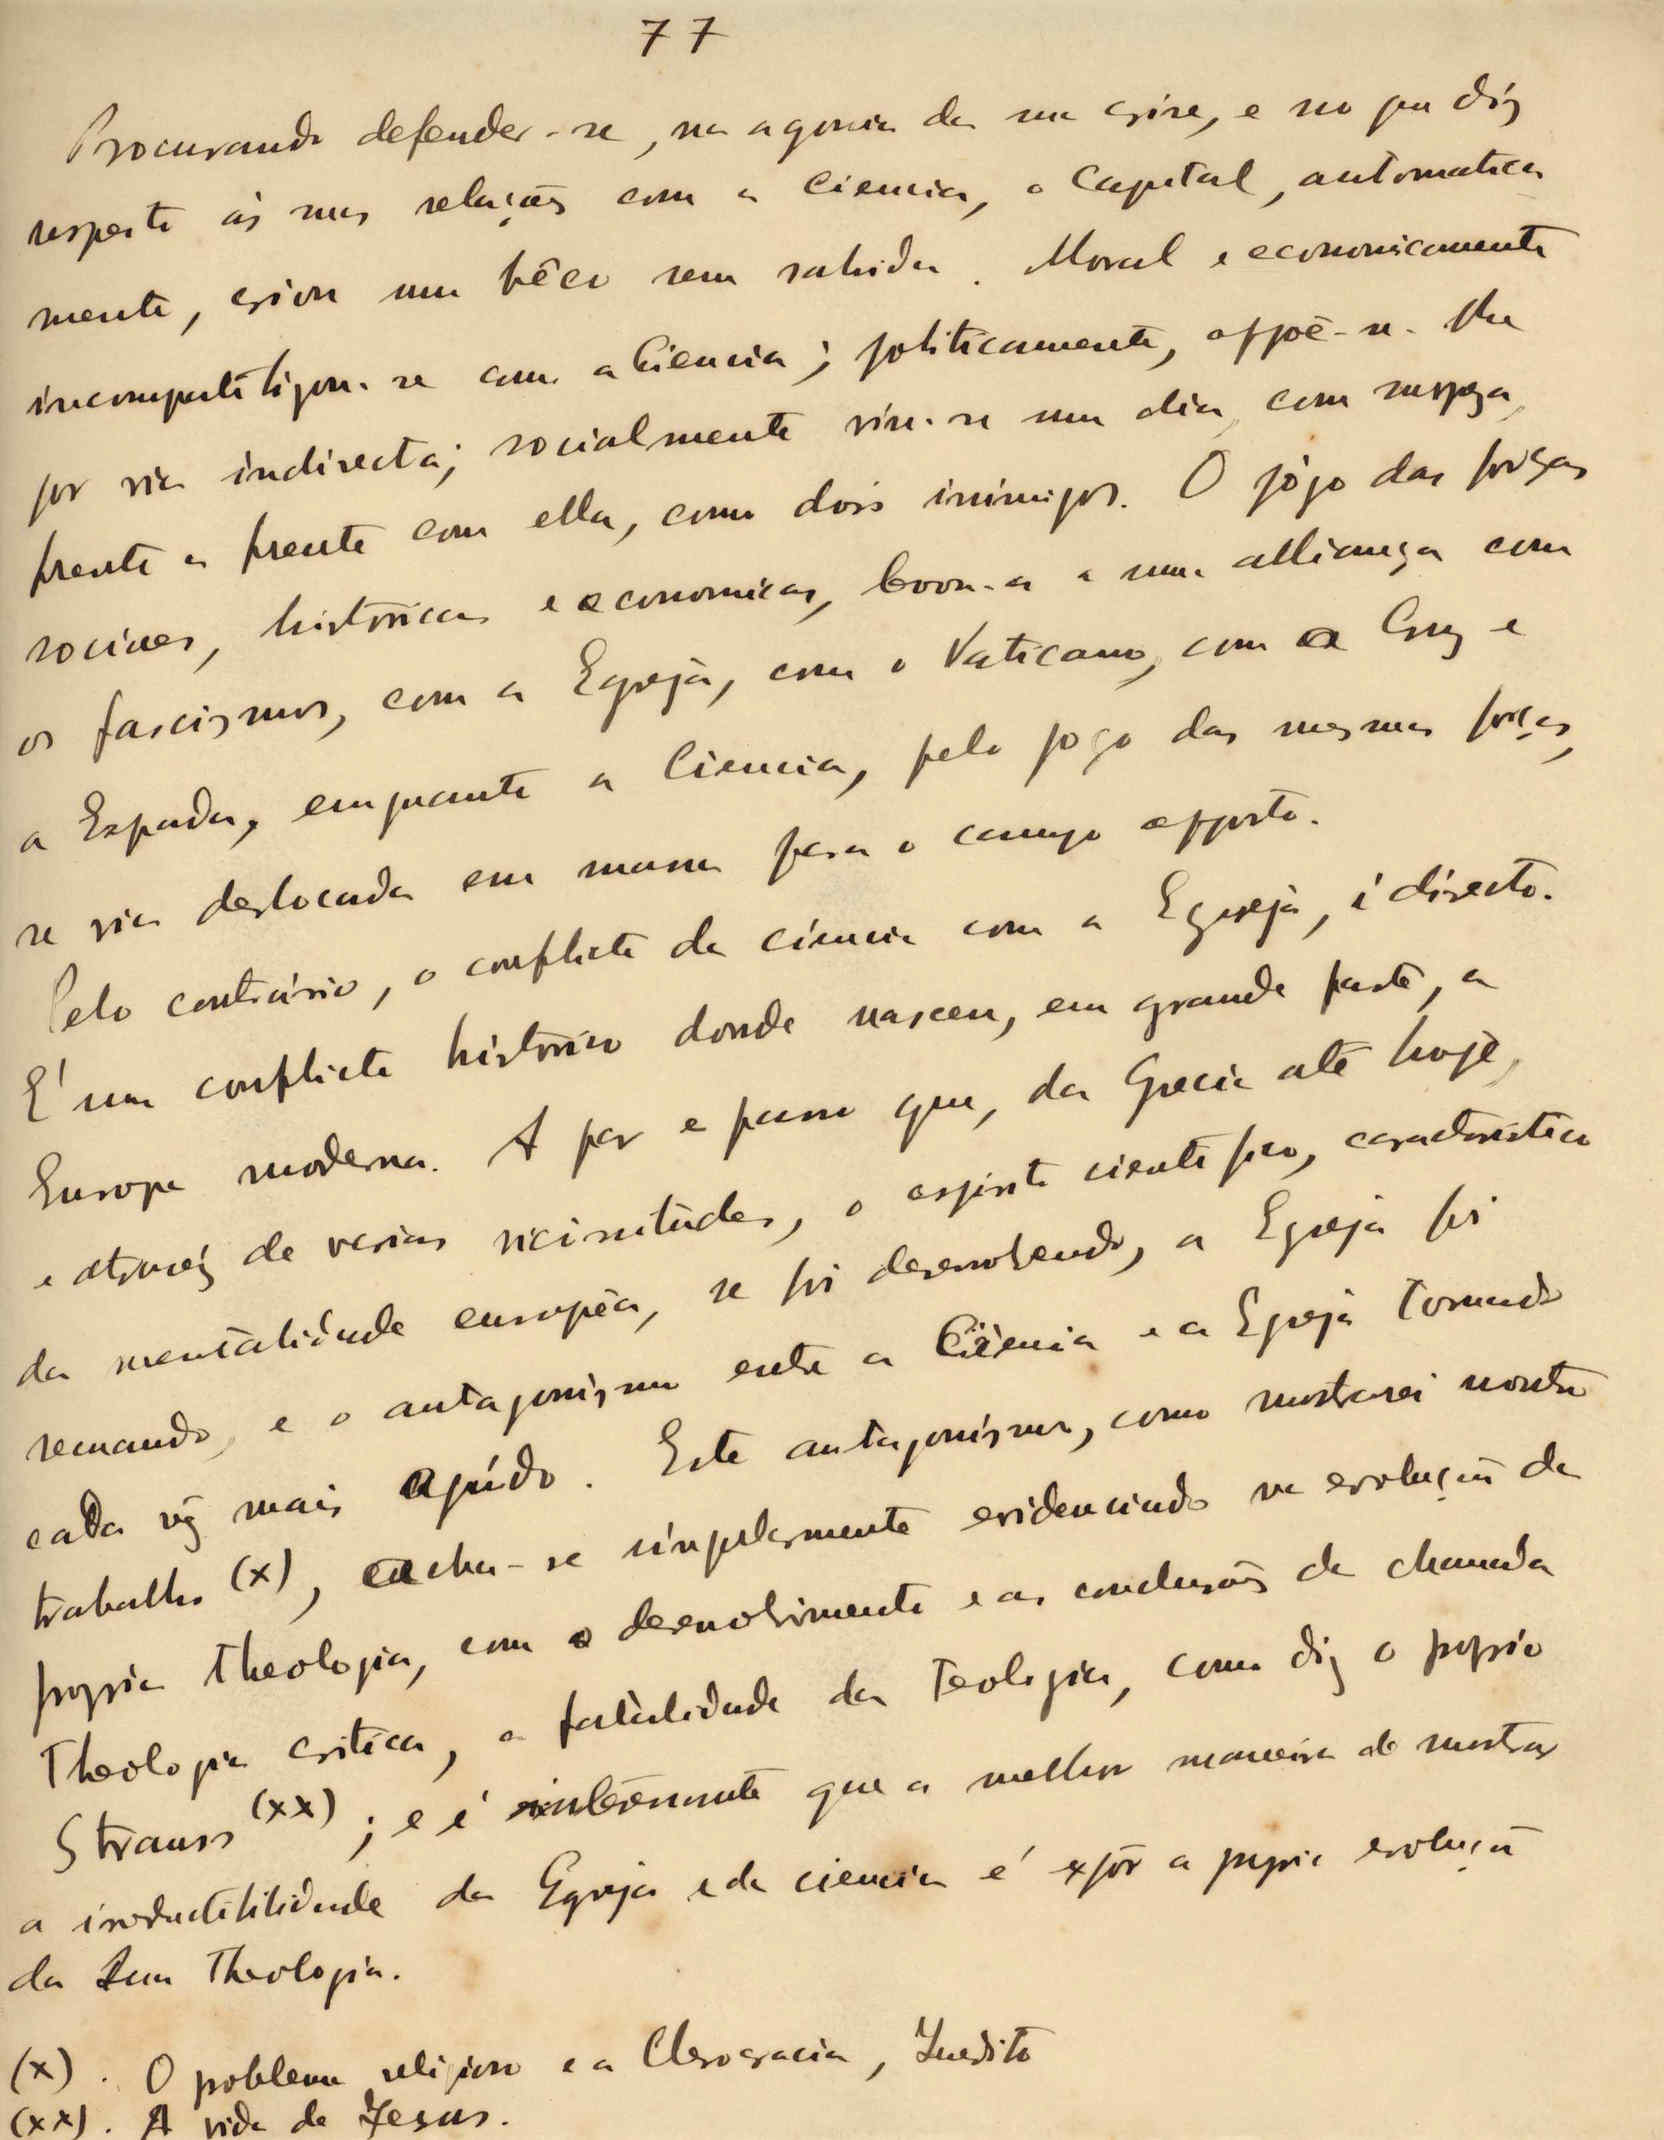 77
Procurando defender-se, na agonia da sua crise, e no que diz
respeito ás suas relações com a Ciencia, o Capital, automatica
mente, criou um bêco sem sahida. Moral e economicamente
incompatibizou-se com a Ciencia; politicamente, oppõe-se-lhe
por via indirecta; socialmente viu-se um dia, com surpeza,
frente a frente com ella, como dois inimigos. O jôgo das forças
sociaes, historicas e economicas, levou-a a uma alliança com
os fascismos, com a Egreja, com o Vaticano, com a Cruz e
a Espada, emquanto a Ciencia, pelo jogo das mesmas forças,
se via deslocada em massa para o campo opposto.
Pelo contrário, o conflicto da ciencia com a Egreja, é directo.
E' um conflicto histórico donde nasceu, em grande parte, a
Europa moderna. A par e passo que, da Grecia até hoje,
e atravéz de varias vicissitudes, o espirito cientifico, caracteristica
da mentalidade européa, se foi desenvolvendo, a Egreja foi
recuando, e o antagonismo entre a Ciencia e a Egreja tornado
cada vez mais agúdo. Este antagonismo, como mostrarei noutro
trabalho (x), acha-se singularmente evidenciado na evolução da
propria theologia, com o desenvolvimento e as conclusões da chamada
Theologia critica, a fatalidade da Teologia, como diz o proprio
Strauss (xx); e é que a melhor maneira de mostrar
a irreductibilidade da Egreja e da ciencia é expôr a propria evolução
da sua Theologia.
(x). O problema religioso e a Clerocracia, Inedito
(xx). A vida de Jesus.